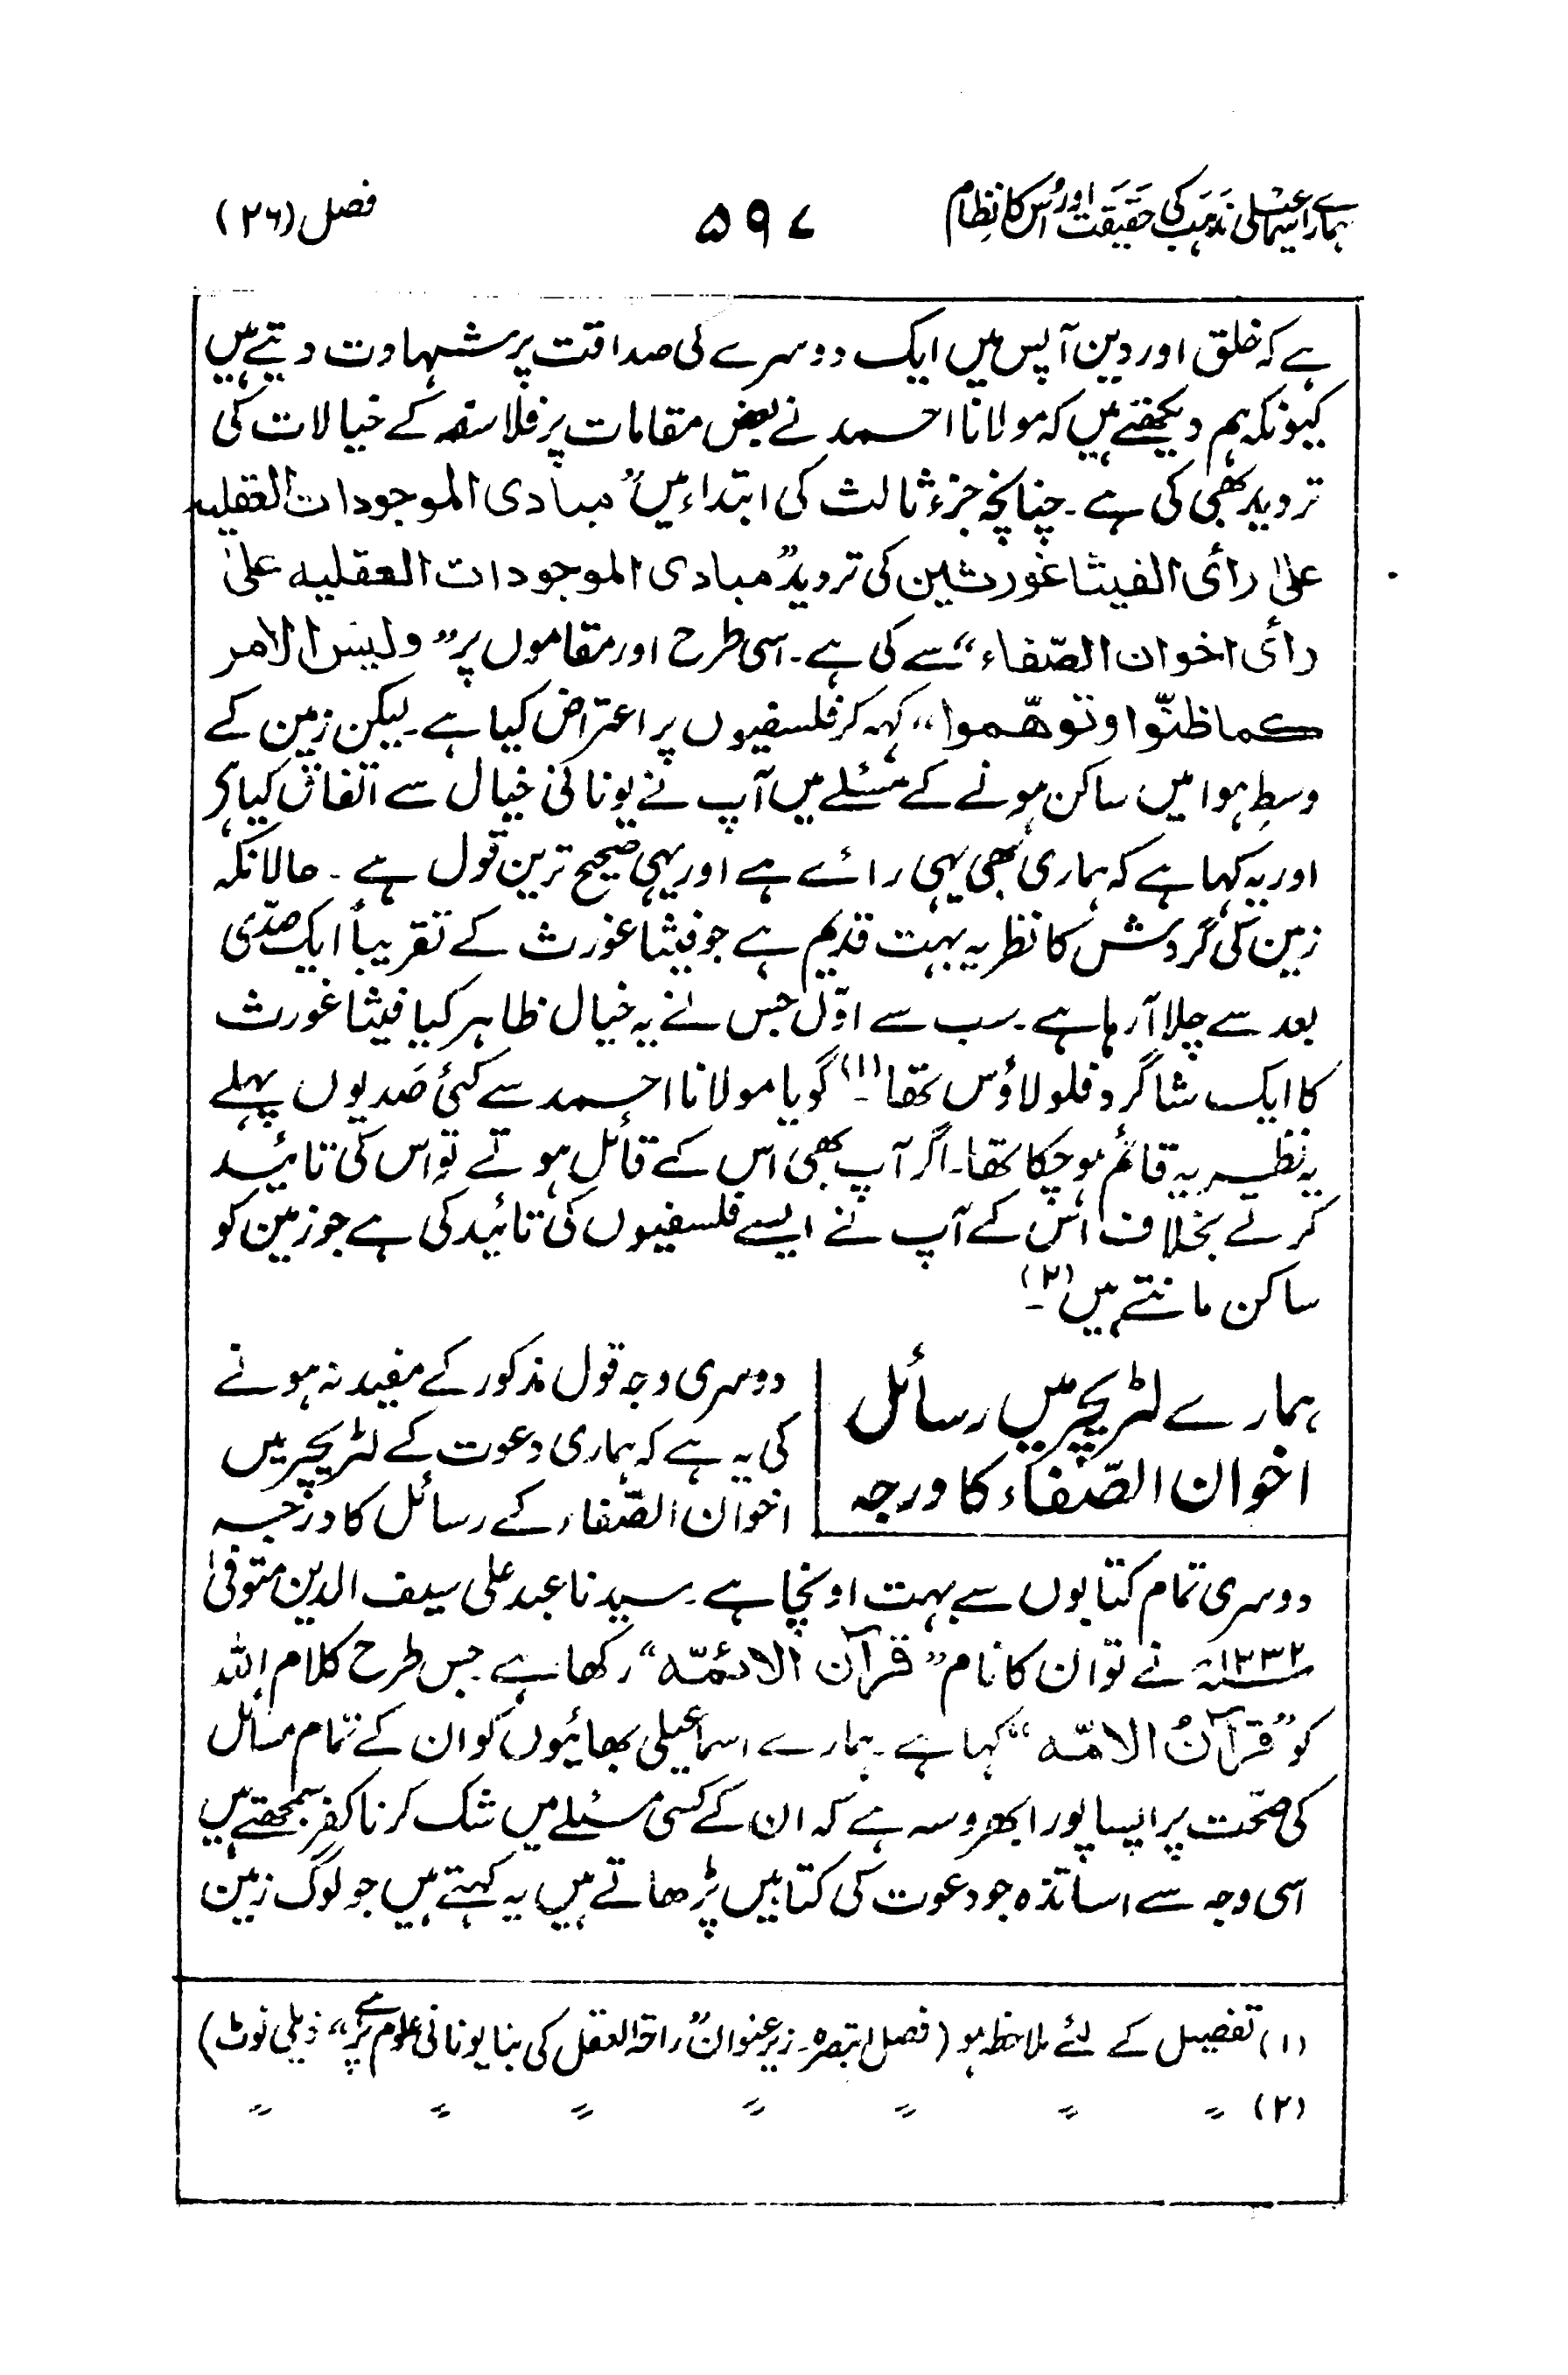 ہمارے اسماعیلی مذہب کی حقیقت اور اُس کا نظام
۵۹۷
فصل (۲۶)
ہے کہ خلق اور دین آپس میں ایک دوسرے کی صداقت پر شہادت دیتے ہیں
کیونکہ ہم دیکھتے ہیں کہ مولانا احمد نے بعض مقامات پر فلاسفہ کے خیالات کی
تردید بھی کی ہے۔ چنانچہ جزء ثالث کی ابتداء میں ”مبادی الموجودات العقلیہ
علیٰ رأی الفیثاغورثین کی تردید ”مبادی الموجودات العقلیہ علیٰ
رأی اخوان الصّفاء“ سے کی ہے۔ اسی طرح اور مقاموں پر ”ولیس الامر
کما ظنّوا و توھّموا“ کہہ کر فلسفیوں پر اعتراض کیا ہے۔ لیکن زمین کے
وسطِ ہوا میں ساکن ہونے کے مسئلے میں آپ نے یونانی خیال سے اتفاق کیا ہے
اور یہ کہا ہے کہ ہماری بھی یہی رائے ہے اور یہی صحیح ترین قول ہے۔ حالانکہ
زمین کی گردش کا نظریہ بہت قدیم ہے جو فیثاغورث کے تقریباً ایک صدی
بعد سے چلا آ رہا ہے۔ سب سے اوّل جس نے یہ خیال ظاہر کیا فیثاغورث
کا ایک شاگرد فلولاؤس تھا۔(۱) گویا مولانا احمد سے کئی صدیوں پہلے
یہ نظریہ قائم ہو چکا تھا۔ اگر آپ بھی اس کے قائل ہوتے تو اس کی تائید
کرتے بخلاف اس کے آپ نے ایسے فلسفیوں کی تائید کی ہے جو زمین کو
ساکن مانتے ہیں۔(۲)
ہمارے لٹریچر میں رسائل
اخوان الصّفاء کا درجہ
دوسری وجہ قول مذکور کے مفید نہ ہونے
کی یہ ہے کہ ہماری دعوت کے لٹریچر میں
اخوان الصّفاء کے رسائل کا درجہ
دوسری تمام کتابوں سے بہت اونچا ہے۔ سیدنا عبد علی سیف الدین متوفیٰ
۱۲۳۲ھ نے تو ان کا نام ”قرآن الائمّہ“ رکھا ہے جس طرح کلام اللہ
کو ”قرآنُ الامّہ“ کہا ہے۔ ہمارے اسماعیلی بھائیوں کو ان کے تمام مسائل
کی صحّت پر ایسا پورا بھروسہ ہے کہ ان کے کسی مسئلے میں شک کرنا کفر سمجھتے ہیں
اسی وجہ سے اساتذہ جو دعوت کی کتابیں پڑھاتے ہیں یہ کہتے ہیں جو لوگ زمین
(۱) تفصیل کے لئے ملاحظہ ہو (فصل تبصرہ۔ زیر عنوان ”راحۃ العقل کی بنا یونانی علوم پر ہے“ ذیلی نوٹ)
(۲) 〃 〃 〃 〃 〃 〃 〃